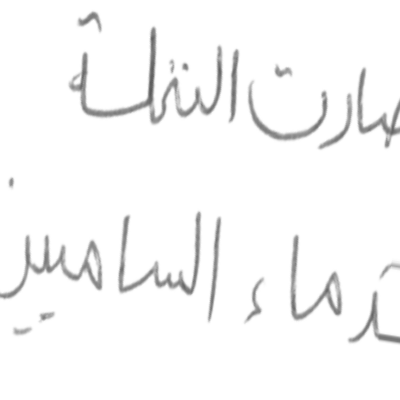 صارت النخلة
قدماء الساميين